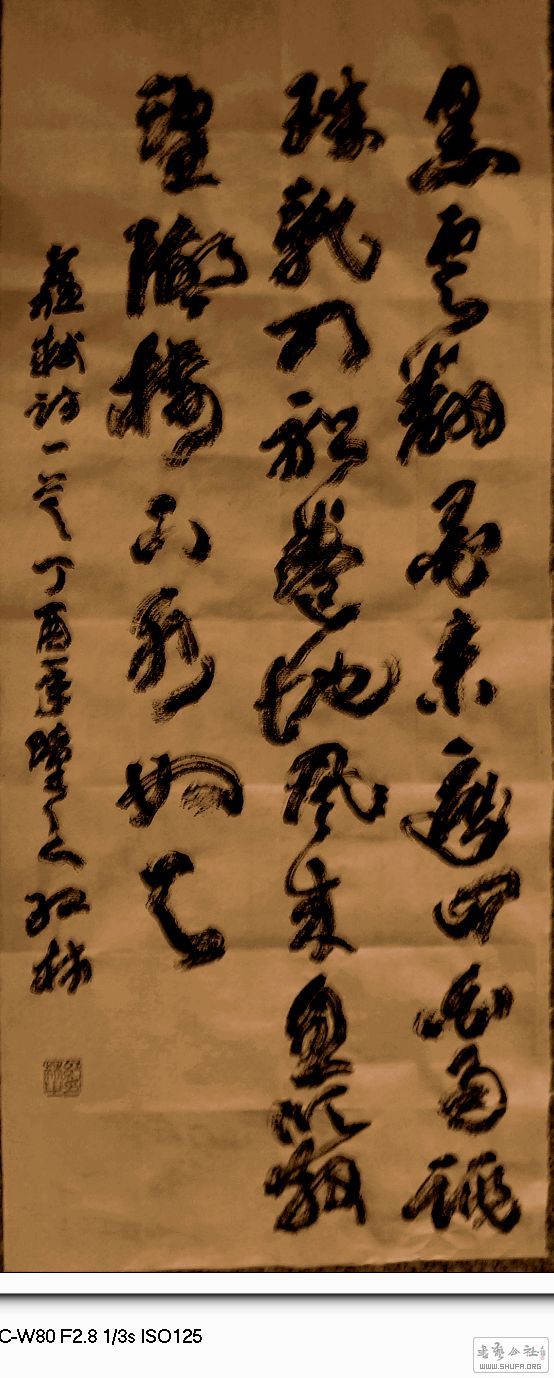 黑雲翻墨未遮山白雨跳
珠亂入船卷地風来忽吹散
望湖樓下水如天
蘇軾詩一首丁酉年
C-W80 F2.8 1/3s ISO125
书艺公社
WWW.SHUFA.ORG